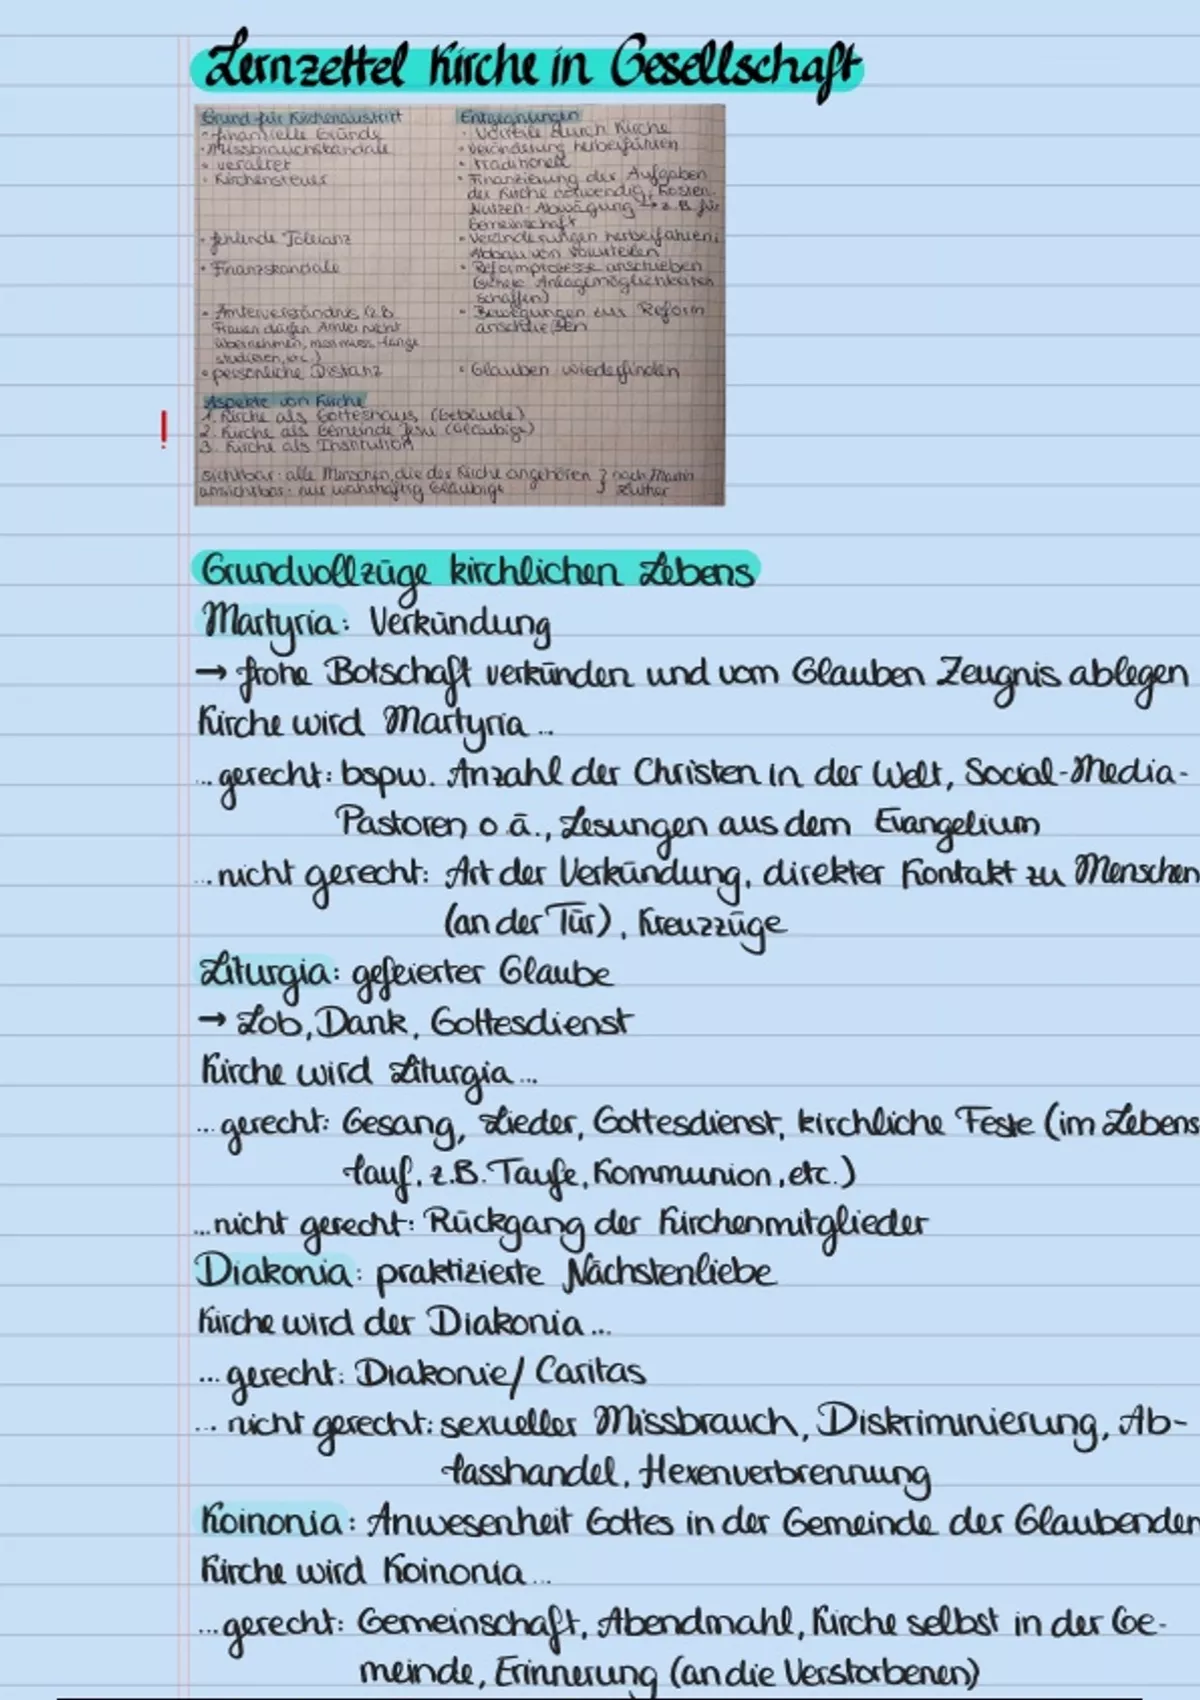 Lernzettel Kirche in Gesellschaft
Grund für Kirchenaustritt
• finanzielle Gründe
• Missbrauchskandale
• veraltet
• Kirchensteuer
• fehlende Toleranz
• Finanzskandale
• Ämterverständnis (z.B.
Frauen dürfen Ämter nicht
übernehmen, man muss lange
studieren, etc.)
• persönliche Distanz
Entgegnungen
• Vorteile durch Kirche
• Veränderung herbeiführen
• traditionell
• Finanzierung der Aufgaben
der Kirche notwendig, Kosten-
Nutzen-Abwägung → z.B. für
Gemeinschaft
• Veränderungen herbeiführen,
Abbau von Vorurteilen
• Reformprozesse anschieben
(sichere Anlagemöglichkeiten
schaffen)
• Bewegungen zur Reform
anschließen
• Glauben wiederfinden
Aspekte von Kirche
1. Kirche als Gotteshaus (Gebäude)
! 2. Kirche als Gemeinde Jesu (Gläubige)
3. Kirche als Institution
sichtbar: alle Menschen, die der Kirche angehören } nach Martin
unsichtbar: nur wahrhaftig Gläubige } Luther
Grundvollzüge kirchlichen Lebens
Martyria: Verkündung
→ frohe Botschaft verkünden und vom Glauben Zeugnis ablegen
Kirche wird Martyria ...
... gerecht: bspw. Anzahl der Christen in der Welt, Social-Media-
Pastoren o.ä., Lesungen aus dem Evangelium
... nicht gerecht: Art der Verkündung, direkter Kontakt zu Menschen
(an der Tür), Kreuzzüge
Liturgia: gefeierter Glaube
→ Lob, Dank, Gottesdienst
Kirche wird Liturgia ...
... gerecht: Gesang, Lieder, Gottesdienst, kirchliche Feste (im Lebens
lauf, z.B. Taufe, Kommunion, etc.)
... nicht gerecht: Rückgang der Kirchenmitglieder
Diakonia: praktizierte Nächstenliebe
Kirche wird der Diakonia ...
... gerecht: Diakonie/ Caritas
... nicht gerecht: sexueller Missbrauch, Diskriminierung, Ab-
lasshandel, Hexenverbrennung
Koinonia: Anwesenheit Gottes in der Gemeinde der Glaubenden
Kirche wird Koinonia ...
... gerecht: Gemeinschaft, Abendmahl, Kirche selbst in der Ge-
meinde, Erinnerung (an die Verstorbenen)